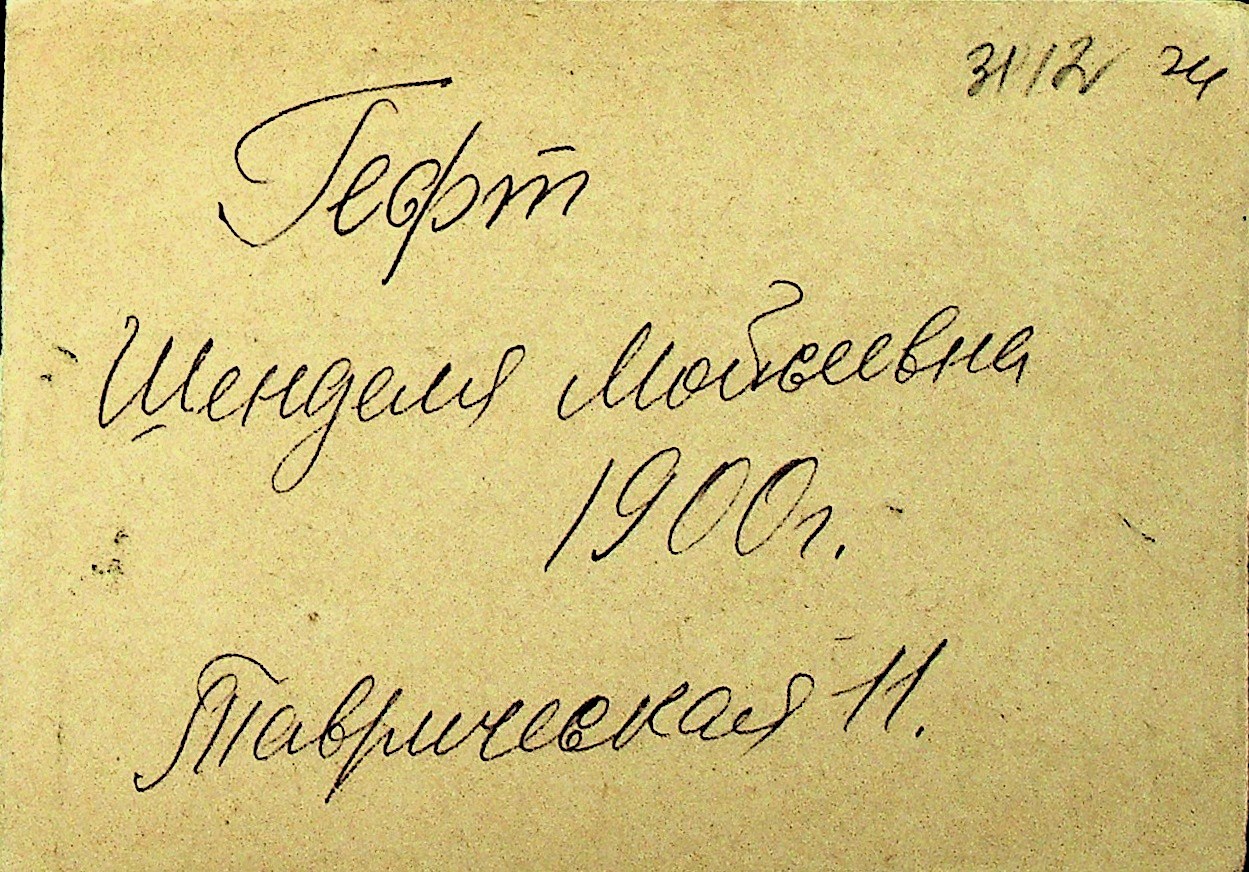 31/12 24
Гефт
Шенделя Мойсеевна
1900г.
Таврическая 11.